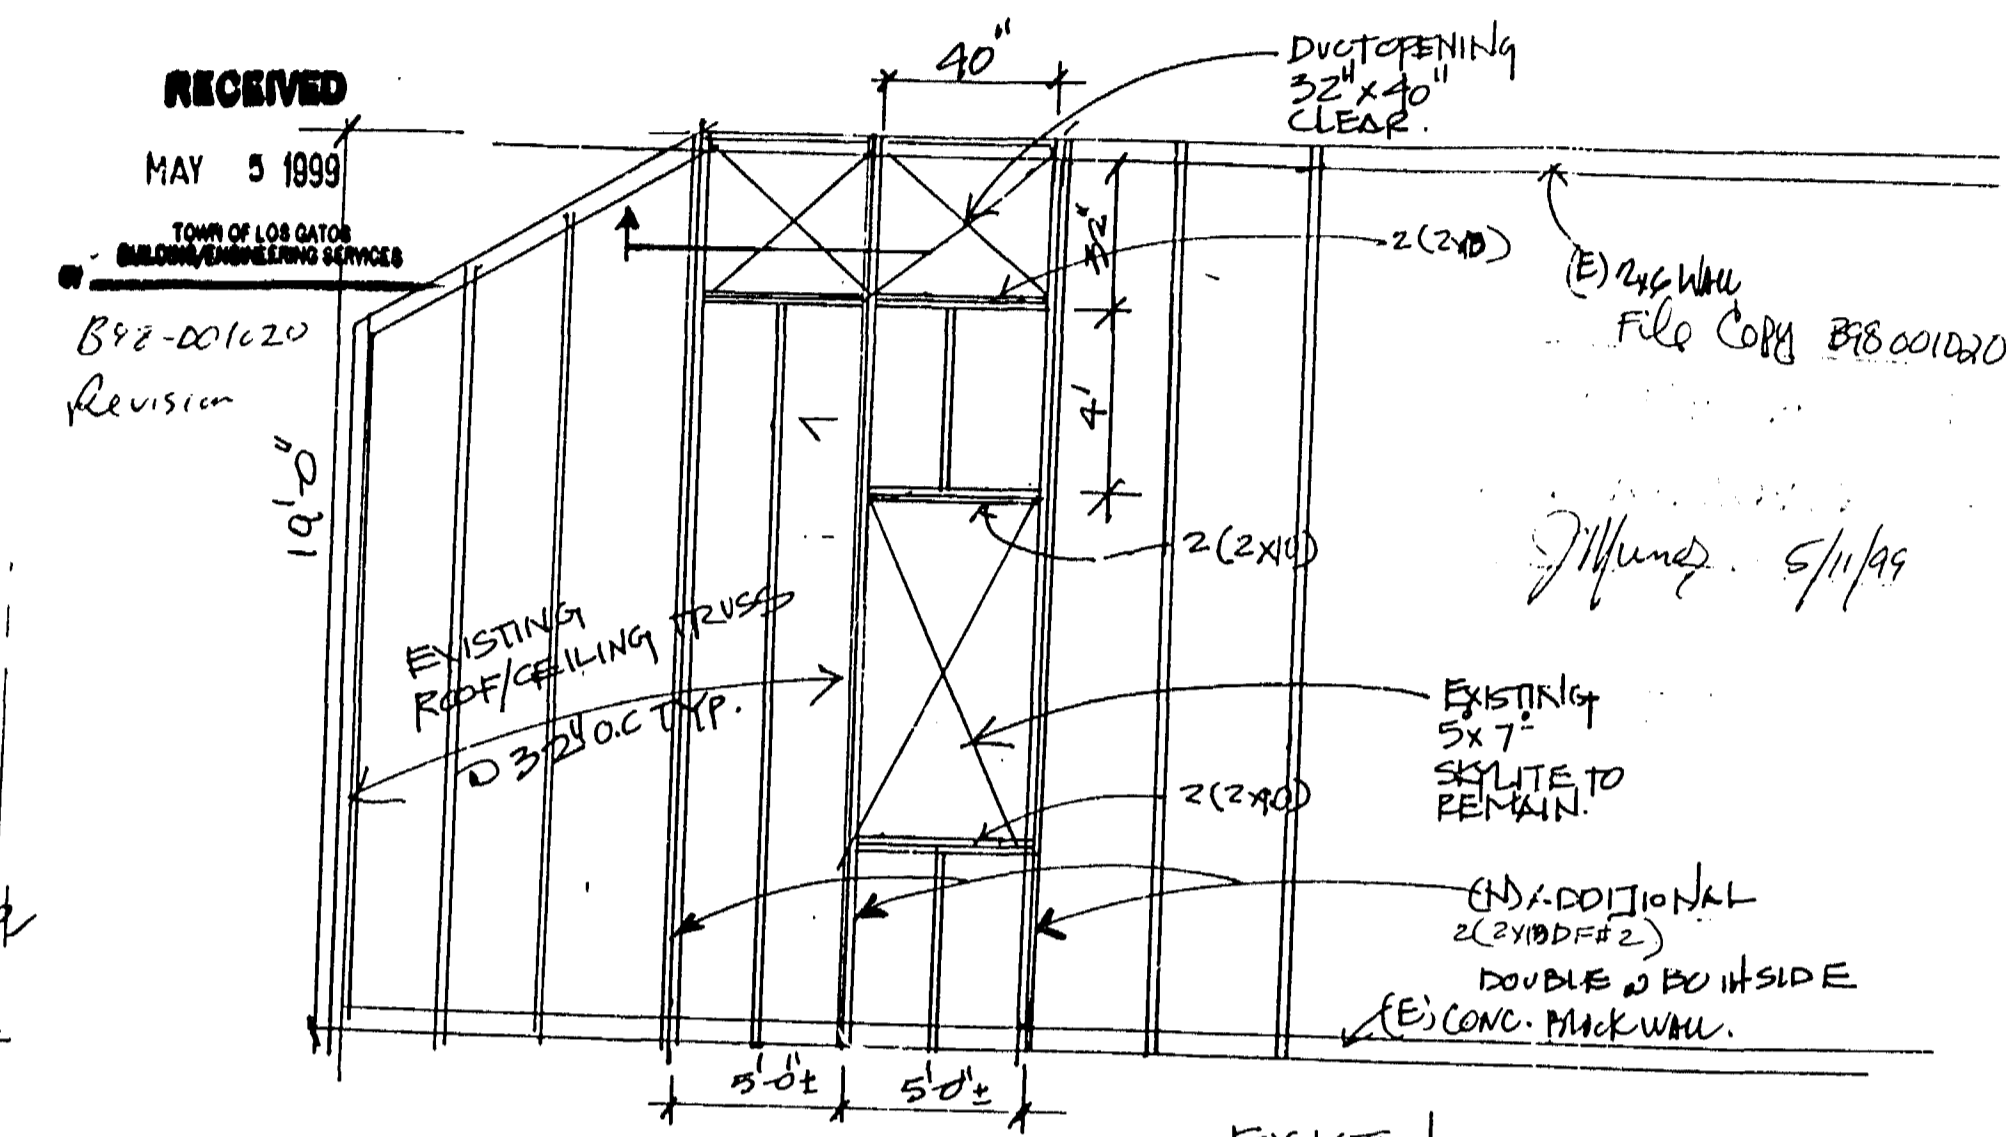 RECEIVED
MAY 5 1999
TOWN OF LOS GATOS
BUILDING/ENGINEERING SERVICES
BY
Revision
40"
DUCT OPENING
32" x 40"
CLEAR.
32"
(E) 2x6 WALL
File Copy B98001020
4'
19'-0"
2(2x10)
5/11/99
EXISTING
ROOF/CEILING TRUSS
@ 32" O.C TYP.
EXISTING
5° x 7°
SKYLITE TO
REMAIN.
2(2x10)
(N) ADDITIONAL
DF#2)
DOUBLE @ BOTH SIDE
(E) CONC. BLOCK WALL.
5'-0"±
5'-0"±